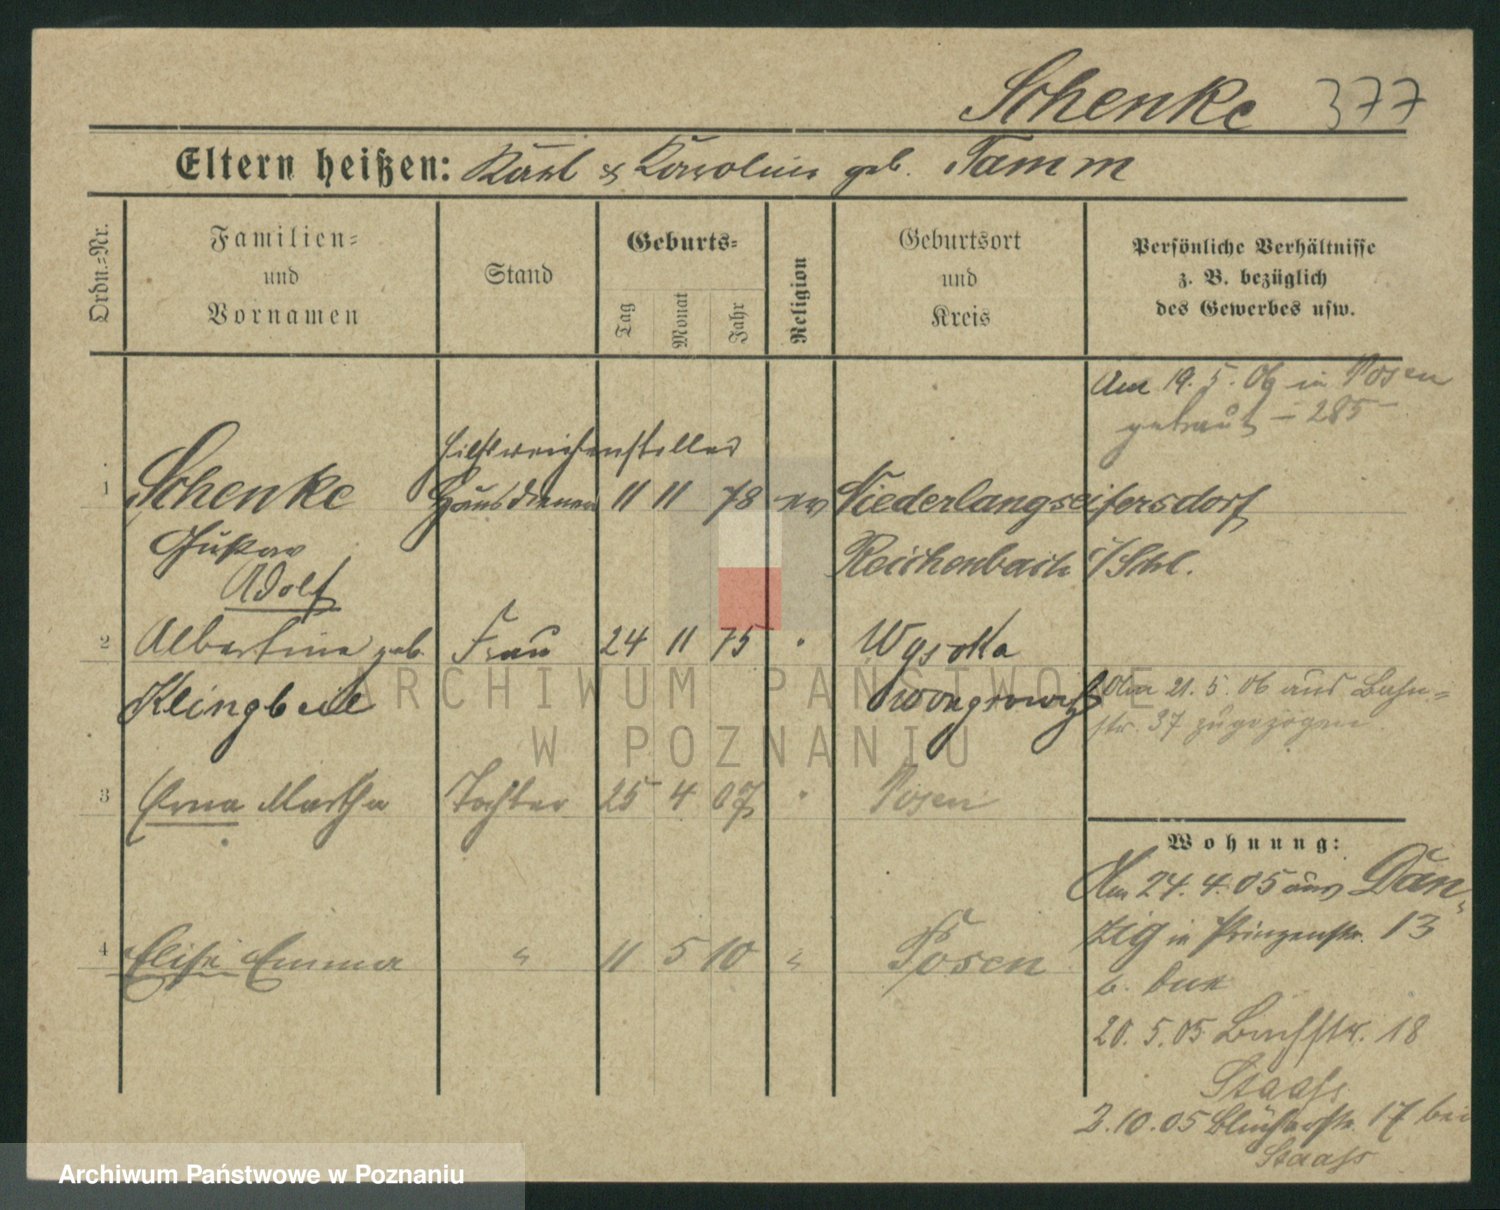 Schenke 377
Eltern heißen: Karl & Karoline geb. Tamm
Ordn.=Nr.
Familien=
und
Vornamen
Stand
Geburts=
Tag
Monat
Jahr
Religion
Geburtsort
und
Kreis
Persönliche Verhältnisse
z. B. bezüglich
des Gewerbes usw.
Am 19. 5. 06 in Posen
getraut - 285 -
Hilfsweichensteller
1 Schenke Hausdiener 11 11 78 ev Niederlangseifersdorf
Gustav Reichenbach i/Schl.
Adolf
2 Albertine geb. Frau 24 11 75 " Wysoka
Klingbeil Wongrowitz
Am 21. 5. 06 aus Bahn=
str. 37 zugezogen.
3 Erna Martha Tochter 25 4 07 " Posen
Wohnung:
Am 24. 4. 05 aus Dan=
zig in Prinzenstr. 13
b.
4 Elise Emma " 11 5 10 " Posen
20. 5. 05 Bachstr. 18
Staass
2. 10. 05 Blücherstr. 17 bei
Staass
ARCHIWUM PAŃSTWOWE
W POZNANIU
Archiwum Państwowe w Poznaniu